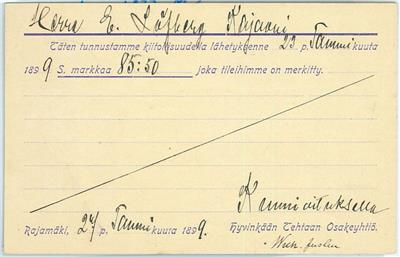 Herra E. Löfberg Kajaani
Täten tunnustamme kiitollisuudella lähetyksenne 23 p. Tammikuuta
1899 S. markkaa 85:50 joka tileihimme on merkitty.
Kunnioituksella
Rajamäki, 27 p. Tammikuuta 1899. Hyvinkään Tehtaan Osakeyhtiö.